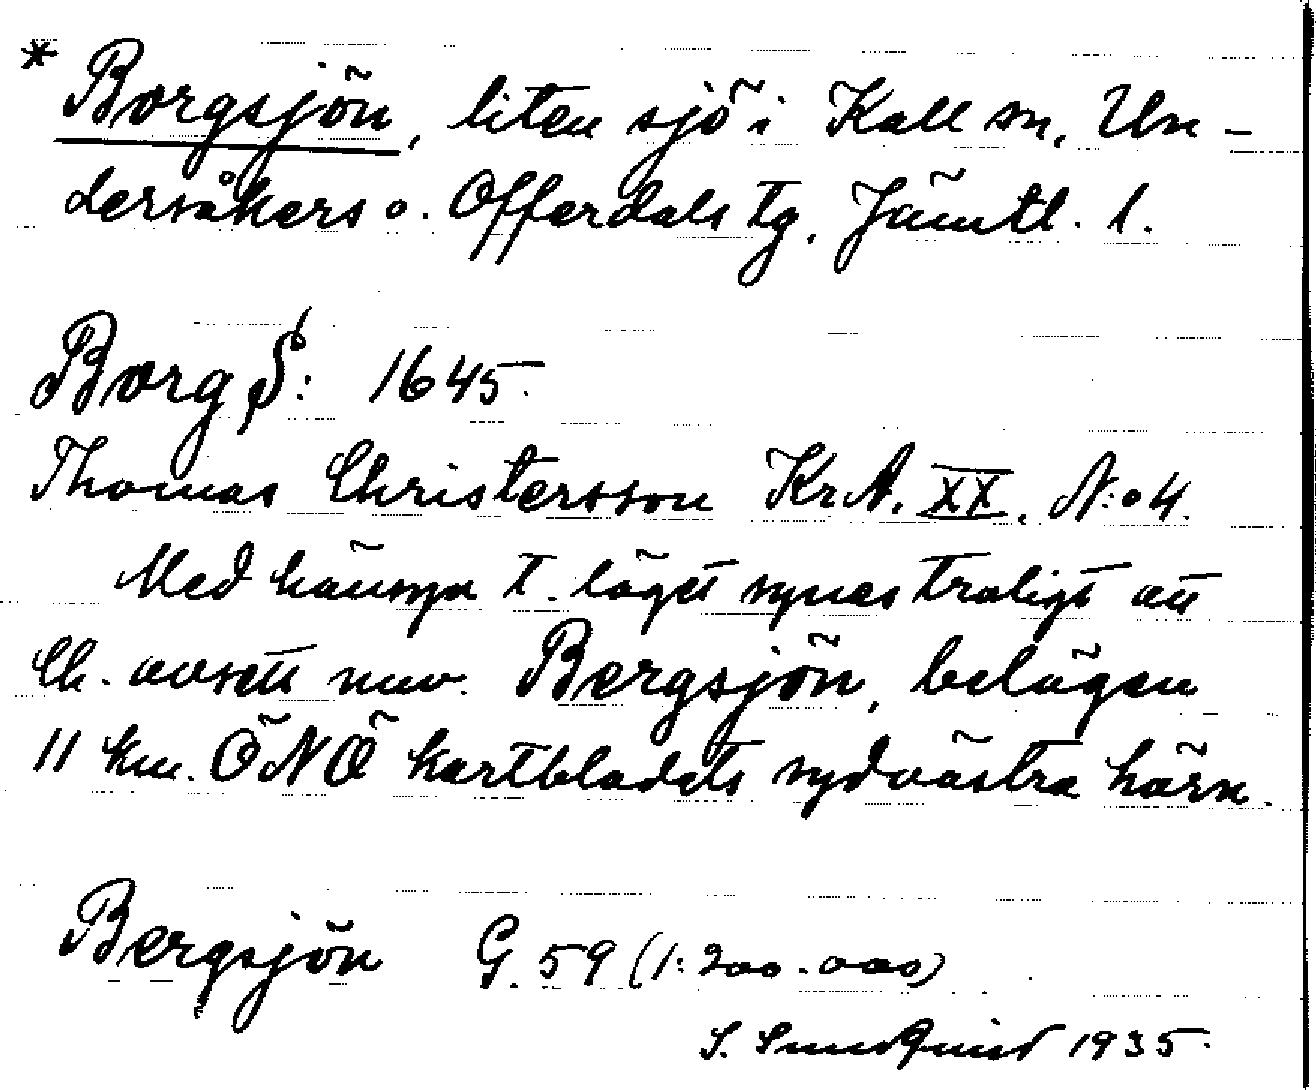 * Borgsjön, liten sjö i Kall sn, Un-
dersåkers o. Offerdals tg. Jämtl. l.
Borg S: 1645.
Thomas Christersson KrA. XX. N:o 4.
Med hänsyn t. läget synes troligt att
Ch. avsett nuv. Bergsjön, belägen
11 km. ÖNÖ kartbladets sydvästra hörn.
Bergsjön G. 59 (1:200.000)
S. Sundquist 1935.